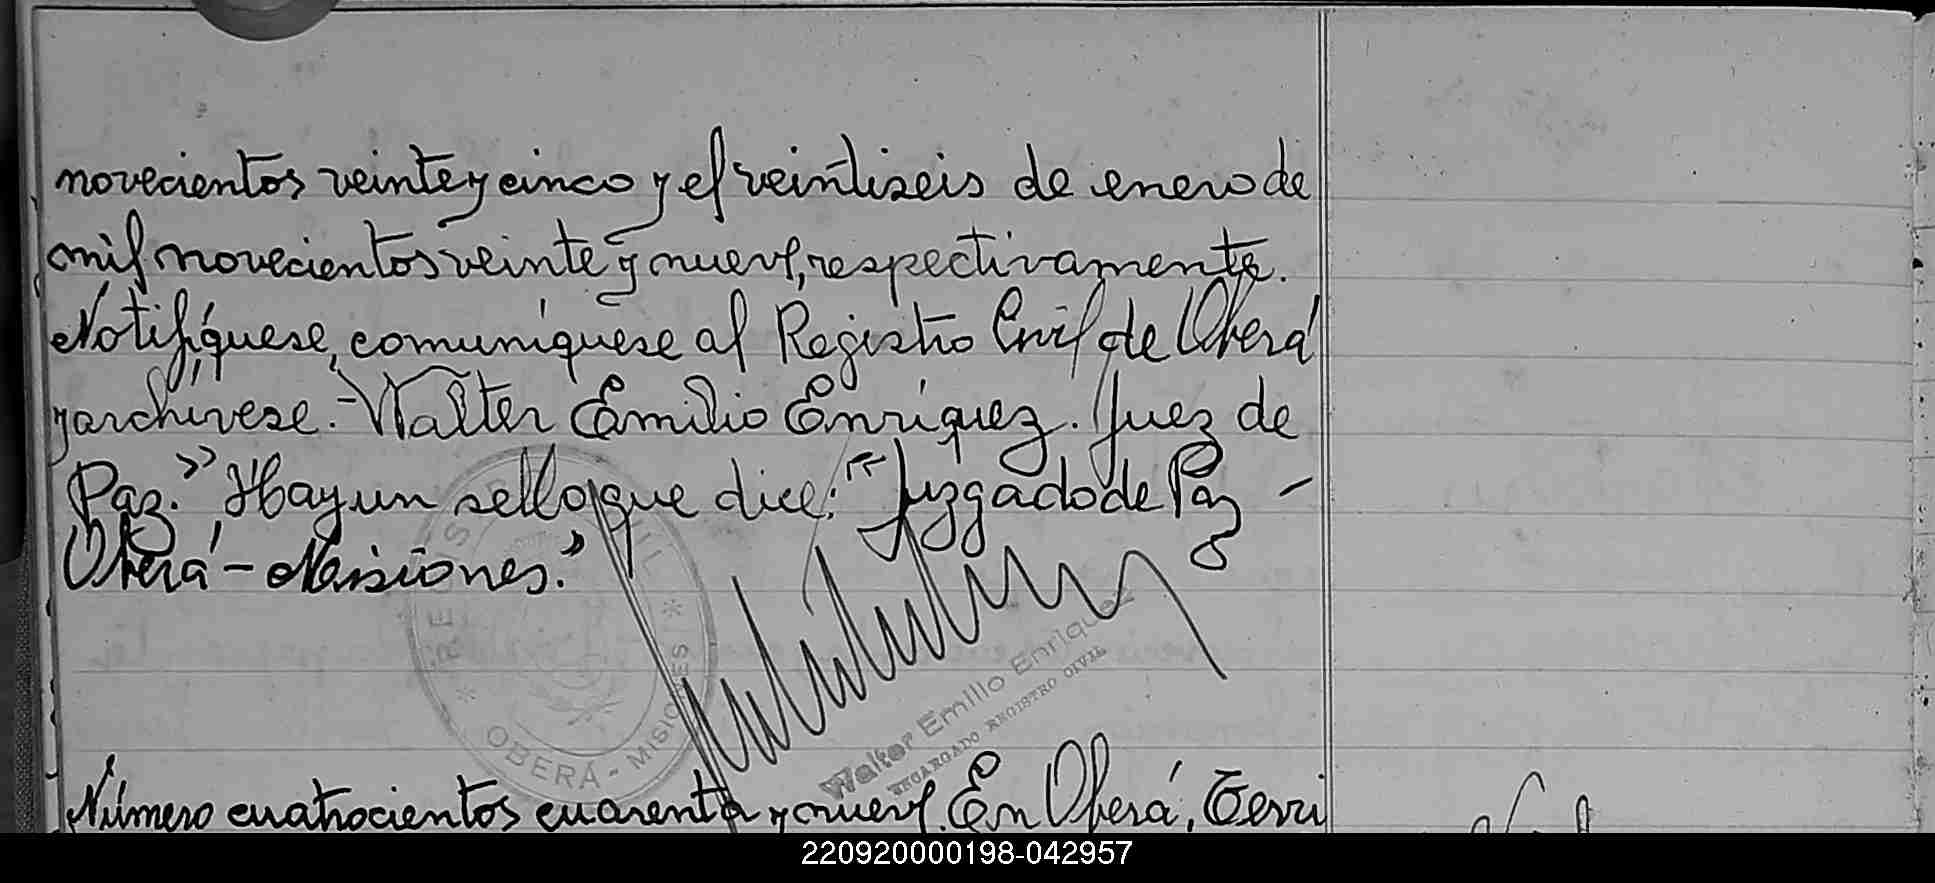 novecientos veinte y cinco y el veintiseis de enero de
mil novecientos veinte y nueve, respectivamente.
Notifíquese, comuníquese al Registro Civil de Oberá
y archívese.- Walter Emilio Enríquez. Juez de
Paz." Hay un sello que dice: "Juzgado de Paz -
Oberá - Misiones."
REGISTRO CIVIL
OBERÁ - MISIONES
Walter Emilio Enriquez
ENCARGADO REGISTRO CIVIL
Número cuatrocientos cuarenta y nueve. En Oberá, Terri
220920000198-042957